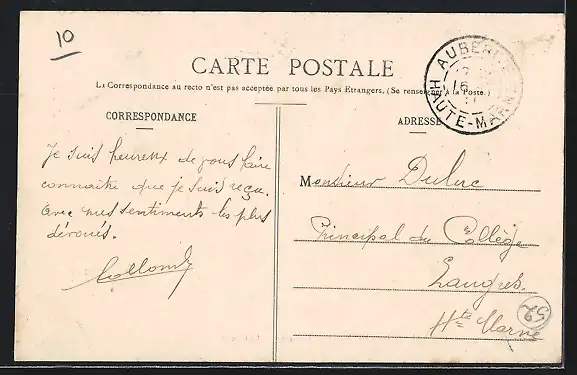 10
CARTE POSTALE
La Correspondance au recto n'est pas acceptée par tous les Pays Etrangers. (Se renseigner à la Poste.)
CORRESPONDANCE
ADRESSE
AUBERIVE
16
HAUTE-MARNE
Je suis heureux de vous faire
connaître que je suis reçu.
Avec mes sentiments les plus
dévoués.
Monsieur Duluc
Principal du Collège
Langres.
Hte Marne
52